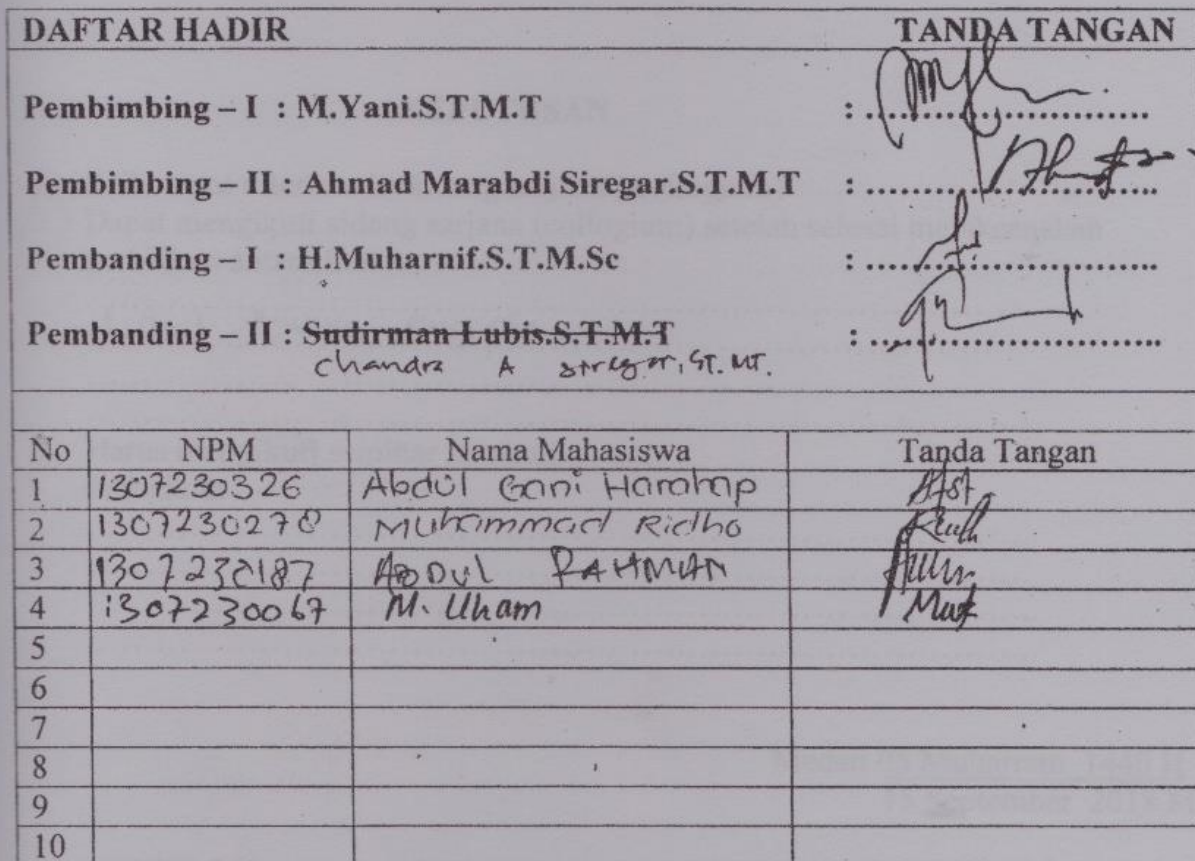 DAFTAR HADIR TANDA TANGAN
Pembimbing – I : M.Yani.S.T.M.T : ..............................
Pembimbing – II : Ahmad Marabdi Siregar.S.T.M.T : ..............................
Pembanding – I : H.Muharnif.S.T.M.Sc : ..............................
Pembanding – II : Sudirman Lubis.S.T.M.T : ..............................
Chandra A Siregar, ST. MT.
No NPM Nama Mahasiswa Tanda Tangan
1 1307230326 Abdul Gani Harahap
2 1307230278 Muhammad Ridho
3 1307230187 ABDUL RAHMAN
4 1307230067 M. Ilham
5
6
7
8
9
10